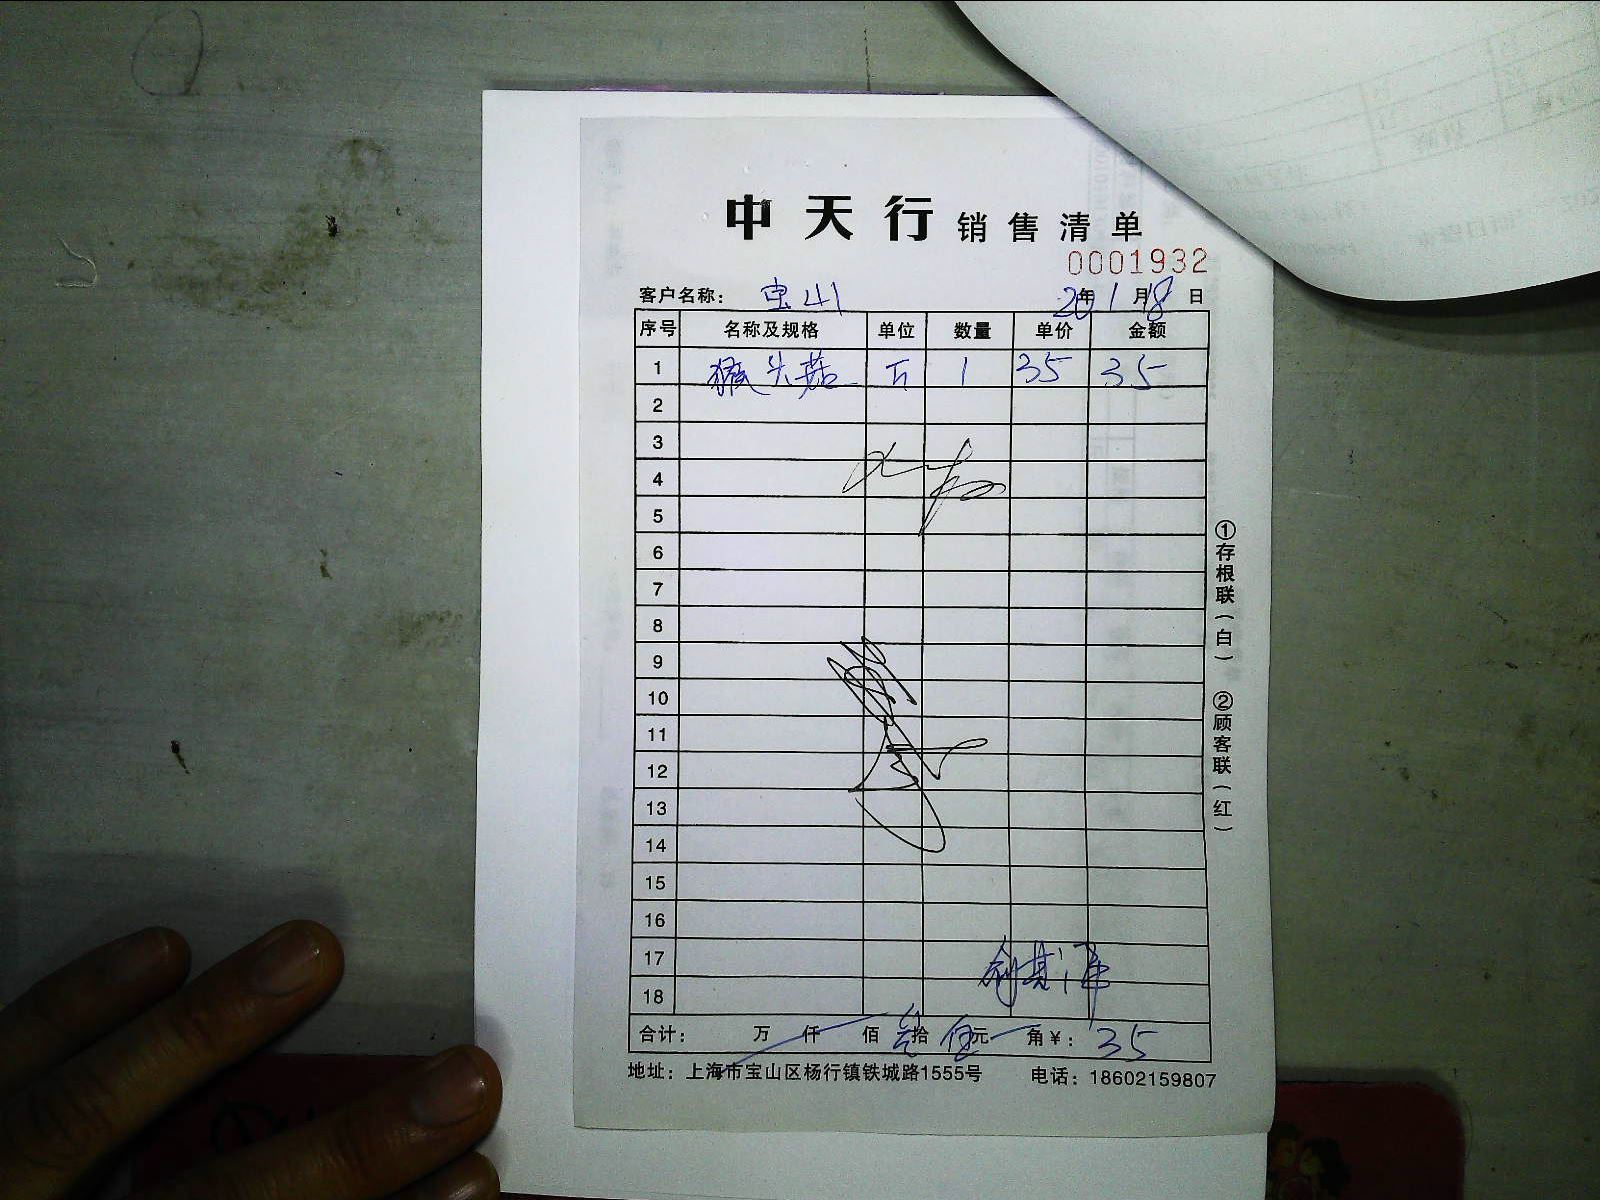 中天行 销售清单
0001932
客户名称： 宝山 20年1月18日
序号 名称及规格 单位 数量 单价 金额
1 猴头菇 斤 1 35 35
2
3
4
5
6
7
8
9
10
11
12
13
14
15
16
17
18
合计： 万 仟 佰 叁拾 伍元 角￥： 35
地址：上海市宝山区杨行镇铁城路1555号 电话：18602159807
①存根联（白） ②顾客联（红）